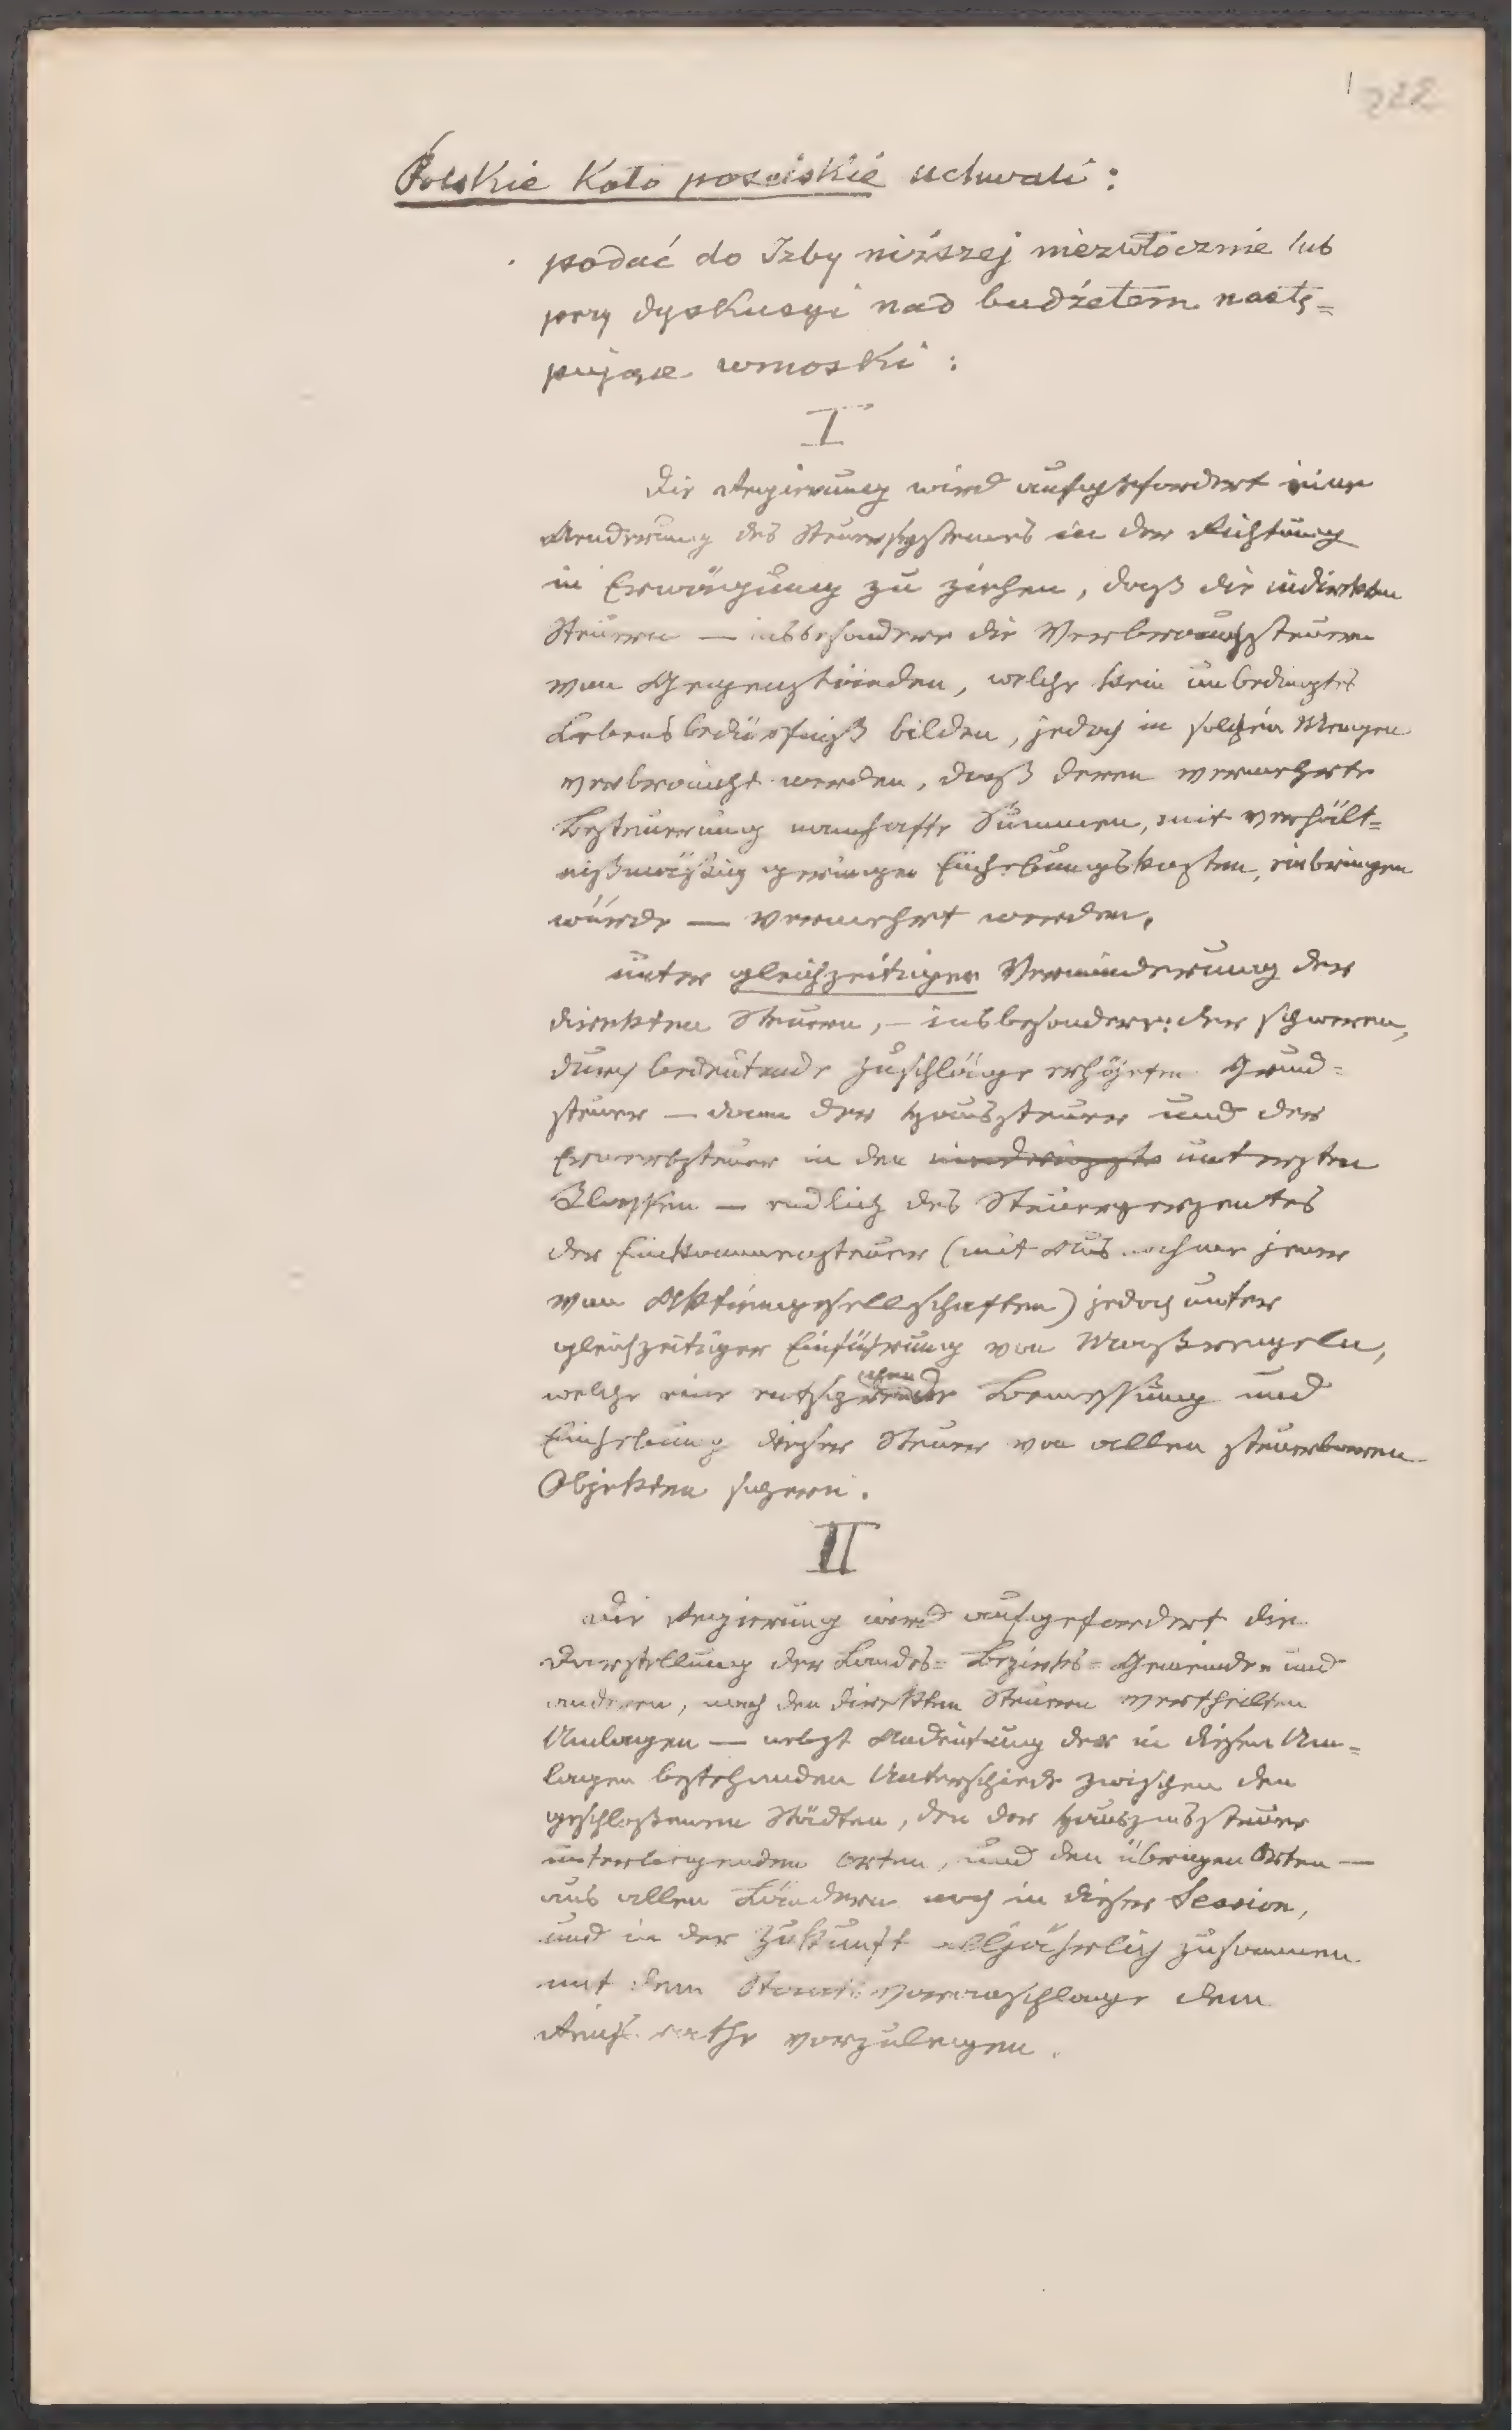 222
Polskie Koło poselskie uchwali:
podać do Izby niższej niezwłocznie lub
przy dyskusyi nad budżetem nastę=
pujące wnioski:
I
Die Regierung wird aufgefordert eine
Aenderung des Steuersystemes in der Richtung
in Erwägung zu ziehen, daß die indirekten
Steuern — insbesondere die Verbrauchssteuern
von Gegenständen, welche kein unbedingtes
Lebensbedürfniß bilden, jedoch in solchen Mengen
verbraucht werden, daß deren vermehrte
Besteuerung namhafte Summen, mit verhält=
nißmäßig geringen Einhebungskosten, einbringen
würde — vermehrt werden,
unter gleichzeitiger Verminderung der
direkten Steuern, — insbesondere: der schweren,
durch bedeutende Zuschläge erhöhten Grund=
steuer — dann der Haussteuer und der
Erwerbsteuer in den untersten
Klassen — endlich des Steuerperzentes
der Einkommensteuer (mit Ausnahme jener
von Aktiengesellschaften) jedoch unter
gleichzeitiger Einführung von Maaßregeln,
welche eine Bemessung und
Einhebung dieser Steuer von allen steuerbaren
Objekten sichern.
II
Die Regierung wird aufgefordert die
Darstellung der Landes= Bezirks= Gemeinde= und
anderen, nach den direkten Steuern vertheilten
Umlagen — nebst Andeutung der in diesen Um=
lagen bestehenden Unterschiede zwischen den
geschloßenen Städten, den der Hauszinssteuer
unterliegenden Orten, und den übrigen Orten —
aus allen Ländern noch in dieser Session,
und in der Zukunft alljährlich zusammen
mit dem Staatsvoranschlage dem
Reichsrathe vorzulegen.